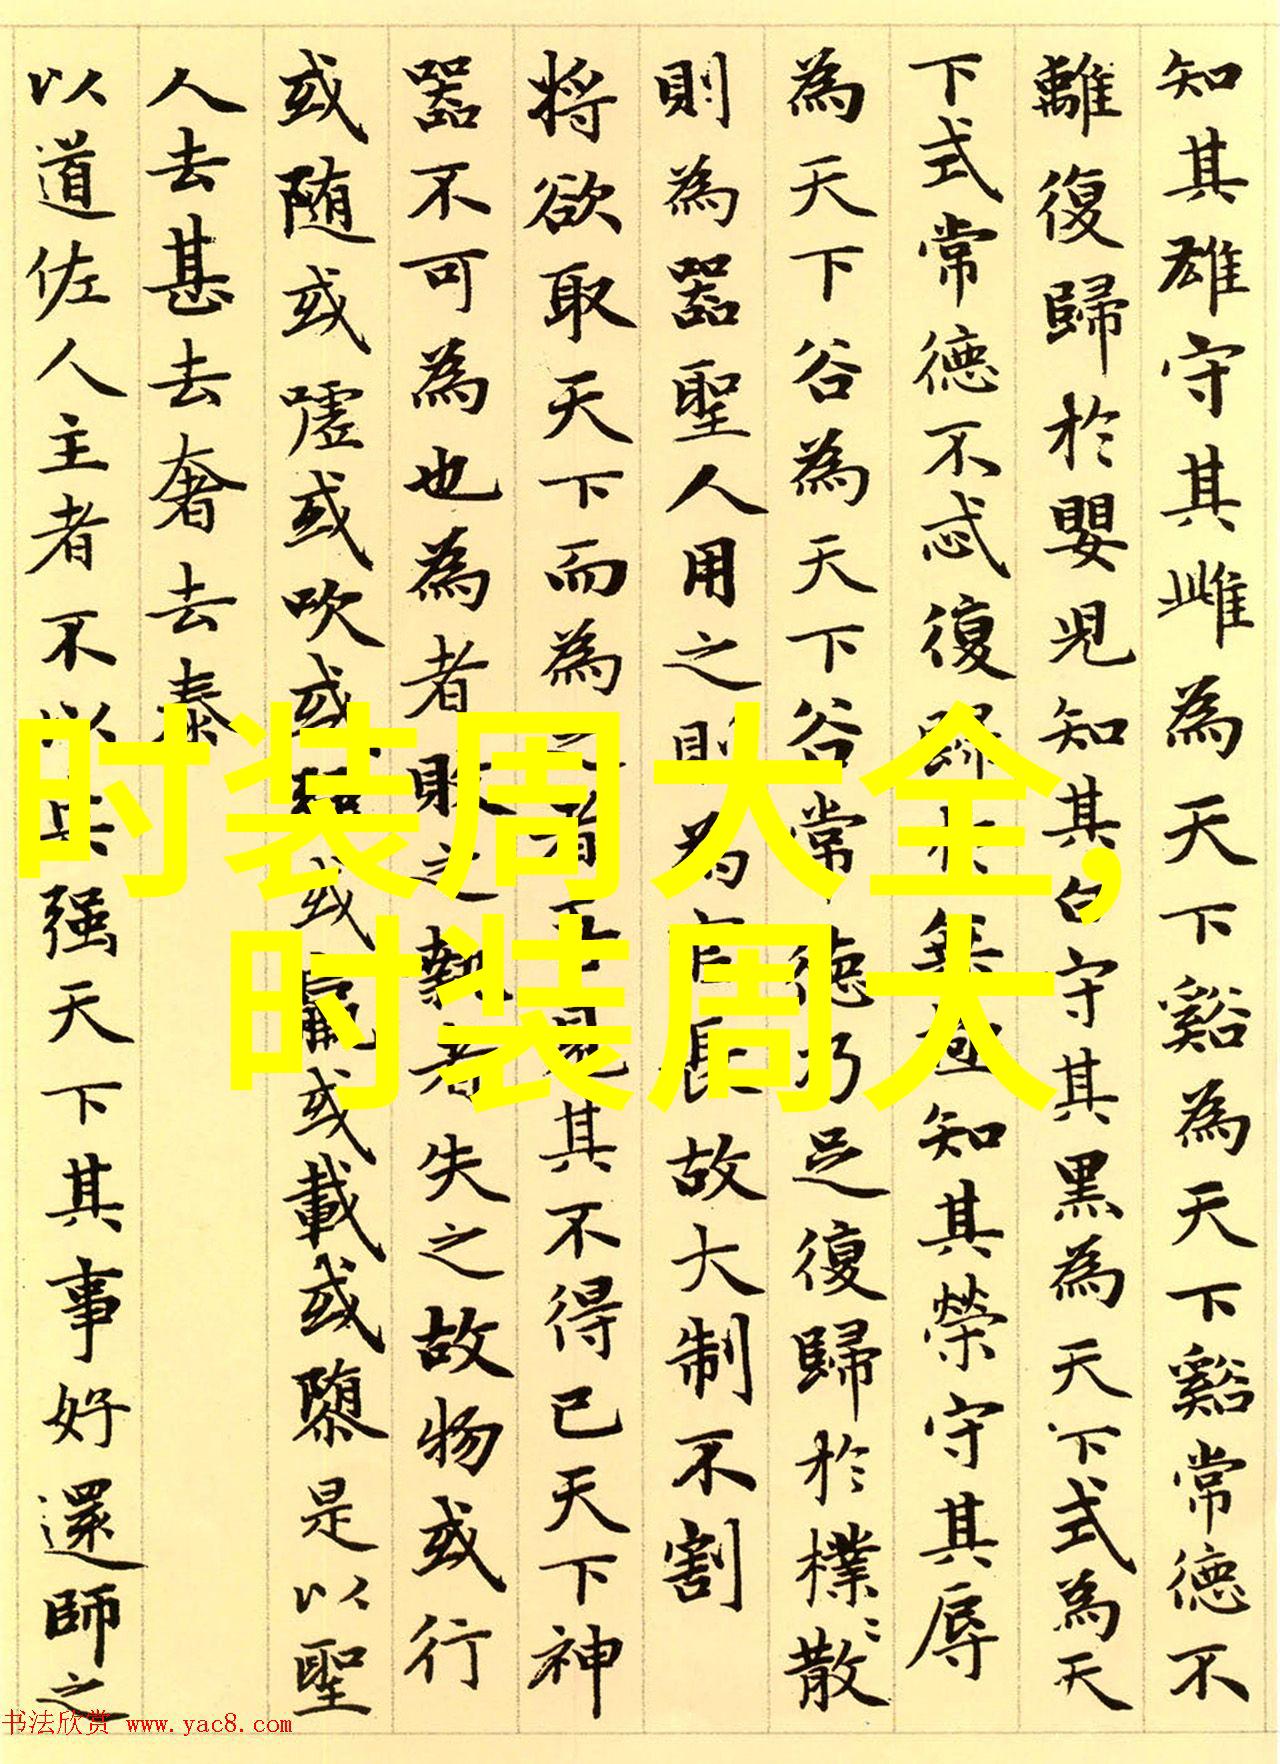 知其雄守其雌為天下谿為天下谿常德不
離復歸於嬰兒知其白守其黑為天下式為天
下式常德不忒復歸於無極知其榮守其辱
為天下谷為天下谷常德乃足復歸於樸〻散
則為器聖人用之則為官長故大制不割
将欲取天下而為之者吾見其不得已天下神
器不可為也為者敗之執者失之故物或行
或随或嘘或吹或强或羸或載或隳是以聖
人去甚去奢去泰
以道佐人主者不以兵强天下其事好還師之
时装周大全,
时装周大
书法欣赏 www.yac8.com